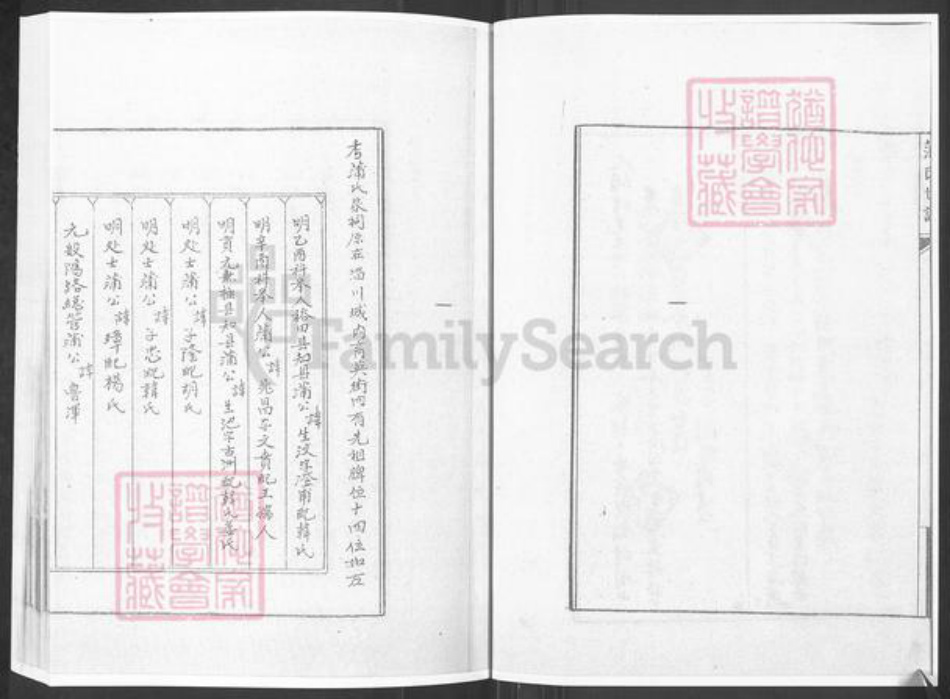 蒲氏世譜
猶他家譜學會收藏
考蒲氏家祠原在淄川城内育英街内有先祖牌位十四位如左
明乙酉科举人 县知县蒲公諱生汶字澄甫配韓氏
明辛酉科举人蒲公諱兆昌字文貴配王孺人
明貢元 县知县蒲公諱生池字 洲配韓氏 氏
明处士蒲公諱子隆配胡氏
明处士蒲公諱子忠配韓氏
明处士蒲公諱璋配楊氏
元般陽路總管蒲公諱魯渾
猶他家譜學會收藏
FamilySearch